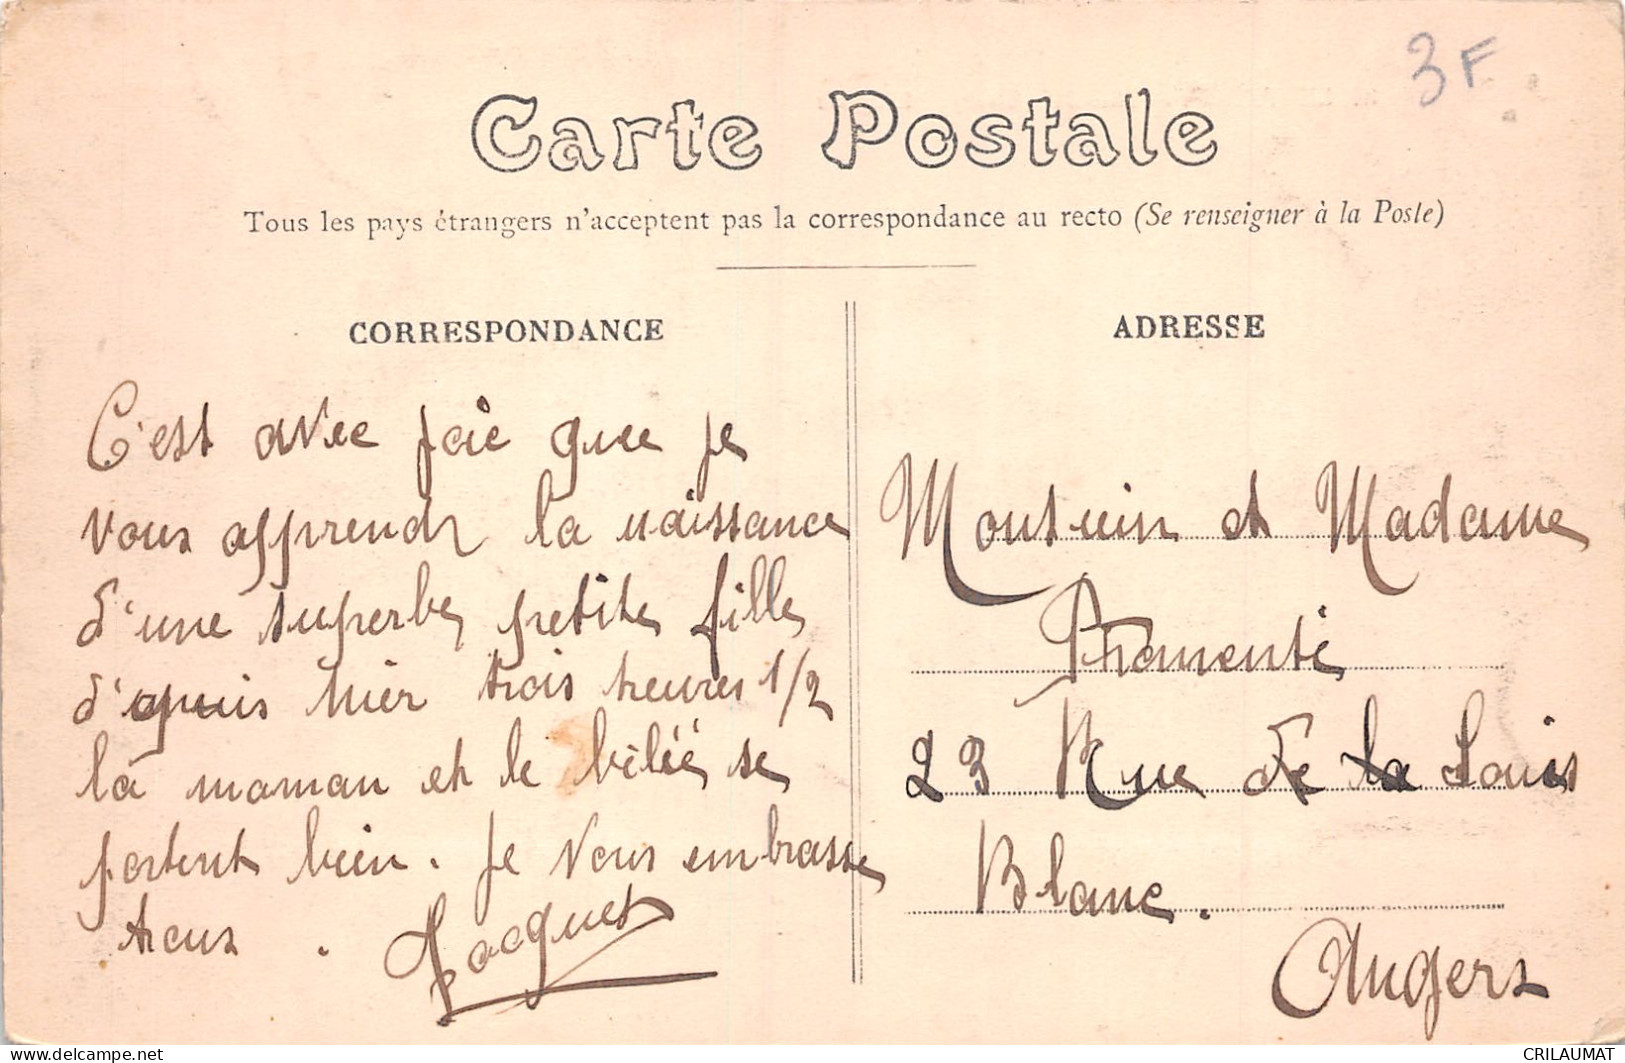 3F
Carte Postale
Tous les pays étrangers n'acceptent pas la correspondance au recto (Se renseigner à la Poste)
CORRESPONDANCE
C'est avec joie que je
vous apprends la naissance
d'une superbe petite fille
d'epuis hier trois heures 1/2
la maman et le bébé se
portent bien. Je vous embrasse
tous. Jacquet
ADRESSE
et Madame
23 Rue de la Louis
Blanc.
Angers
www.delcampe.net
CRILAUMAT